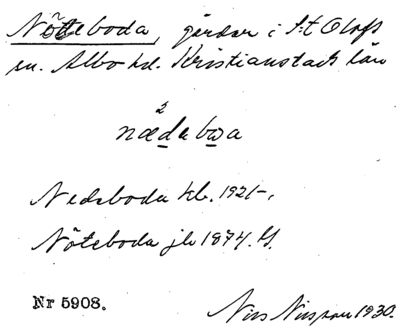 Nöteboda, gårdar i S:t Olofs
sn. Albo hd. Kristianstads län
2
nædebωa
Nedaboda kb. 1921-,
Nöteboda jb 1874. G.
Nr 5908. Nils Nilsson 1930.